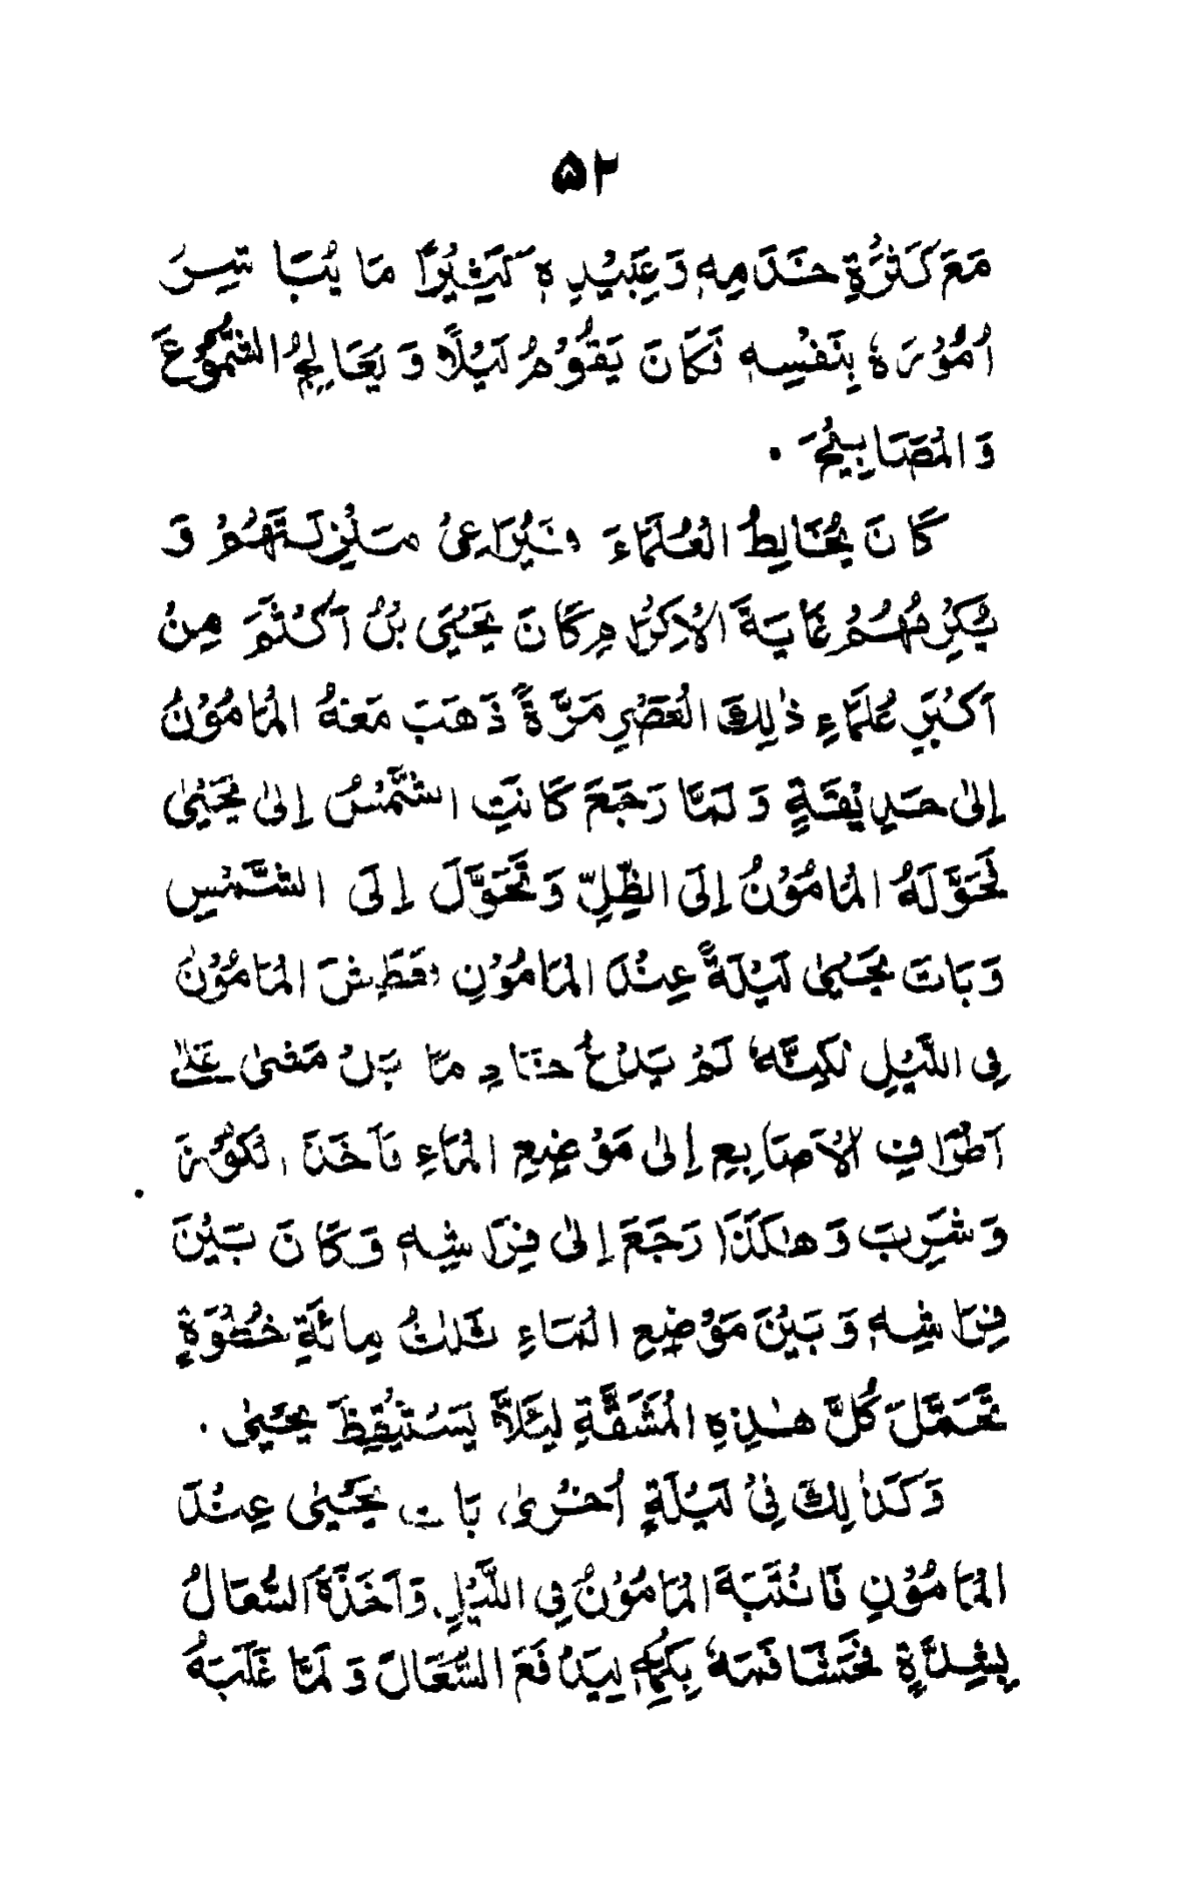 ۵۲
مَعَ كَثْرَةِ خَدَمِهٖ وَعَبِيْدِهٖ كَثِيْرًا مَا يُبَاشِرُ
اُمُوْرَهٗ بِنَفْسِهٖ فَكَانَ يَقُوْمُ لَيْلًا وَيُعَالِجُ الشُّمُوْعَ
وَالْمَصَابِيْحَ ۔
كَانَ يُخَالِطُ الْعُلَمَاءَ وَيُرَاعِىْ مَنْزِلَتَهُمْ وَ
يُكْرِمُهُمْ غَايَةَ الْاِكْرَامِ كَانَ يَحْيَى بْنُ اَكْثَمَ مِنْ
اَكْبَرِ عُلَمَاءِ ذٰلِكَ الْعَصْرِ مَرَّةً ذَهَبَ مَعَهُ الْمَامُوْنُ
اِلٰى حَدِيْقَةٍ وَلَمَّا رَجَعَ كَانَتِ الشَّمْسُ اِلٰى يَحْيٰى
فَحَوَّلَهُ الْمَامُوْنُ اِلَى الظِّلِّ وَتَحَوَّلَ اِلَى الشَّمْسِ
وَبَاتَ يَحْيٰى لَيْلَةً عِنْدَ الْمَامُوْنِ فَعَطِشَ الْمَامُوْنُ
فِى اللَّيْلِ لٰكِنَّهٗ لَمْ يَدْعُ خَادِمًا بَلْ مَضٰى عَلٰى
اَطْرَافِ الْاَصَابِعِ اِلٰى مَوْضِعِ الْمَاءِ فَاَخَذَ الْكُوْزَ
وَشَرِبَ وَهٰكَذَا رَجَعَ اِلٰى فِرَاشِهٖ وَكَانَ بَيْنَ
فِرَاشِهٖ وَبَيْنَ مَوْضِعِ الْمَاءِ ثَلٰثُ مِائَةِ خُطْوَةٍ
تَحَمَّلَ كُلَّ هٰذِهِ الْمَشَقَّةِ لِئَلَّا يَسْتَيْقِظَ يَحْيٰى ۔
وَكَذٰلِكَ فِىْ لَيْلَةٍ اُخْرٰى بَاتَ يَحْيٰى عِنْدَ
الْمَامُوْنِ فَانْتَبَهَ الْمَامُوْنُ فِى اللَّيْلِ وَاَخَذَهُ السُّعَالُ
بِشِدَّةٍ فَحَشَا فَمَهٗ بِكُمِّهٖ لِيَدْفَعَ السُّعَالَ وَلَمَّا غَلَبَهُ